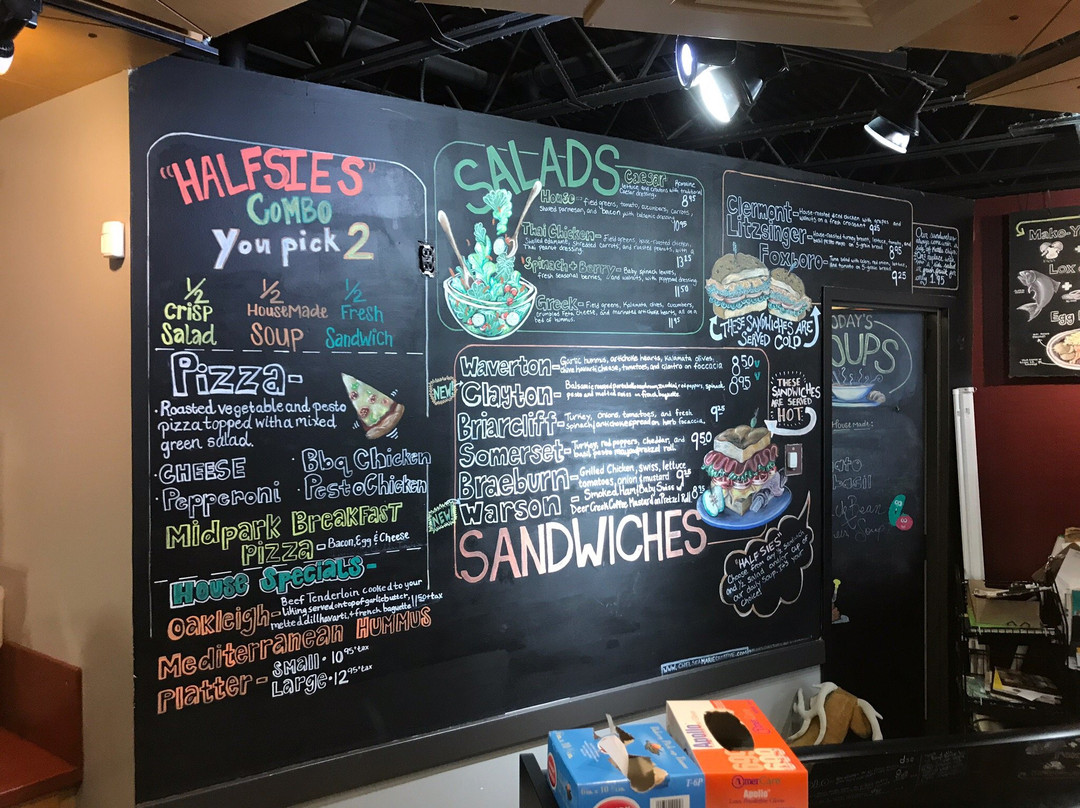 "HALFSIES"
COMBO
You pick 2
½ Crisp Salad
½ Housemade Soup
½ Fresh Sandwich
Pizza-
·Roasted vegetable and pesto
pizza topped with a mixed
green salad.
·CHEESE
·Bbq Chicken
·Pepperoni
·Pesto Chicken
Midpark Breakfast
Pizza-Bacon, Egg & Cheese
House Specials-
Oakleigh-Beef Tenderloin cooked to your
liking served on top of garlic butter,
melted dill havarti, + french baguette 11.50+tax
Mediterranean Hummus
Platter-
Small · 10.95+tax
Large · 12.95+tax
SALADS
Caesar Romaine
lettuce, and croutons with traditional
Caesar dressing. 8.95
House-Field greens, tomato, cucumbers, carrots,
Shaved parmesan, and bacon with balsamic dressing
10.95
Thai Chicken-Field greens, house-roasted chicken,
Shelled edamame, shredded carrots, and roasted peanuts, with a
Thai peanut dressing. 13.25
Spinach + Berry-Baby spinach leaves,
fresh seasonal berries, and walnuts, with poppyseed dressing
11.50
Greek-Field greens, Kalamata olives, cucumbers,
crumbled Feta cheese, and marinated artichoke hearts, all on a
bed of hummus. 11.95
Clermont-House-roasted diced chicken with grapes and
walnuts on a fresh croissant 9.25
Litzsinger-House-roasted turkey breast, lettuce, tomato, and
basil pesto mayo on 9-grain bread 8.95
Foxboro-Tuna salad with celery, red onion, lettuce,
and tomato on 9-grain bread 9.25
Our sandwiches
1.95
THESE SANDWICHES ARE
SERVED COLD
Waverton-Garlic hummus, artichoke hearts, Kalamata olives,
cheese, tomatoes, and cilantro on foccacia 8.50 v
NEW!
Clayton-Balsamic roasted portabella mushroom, red peppers, spinach,
pesto and melted swiss on french baguette. 8.95 v
Briarcliff-Turkey, onions, tomatoes, and fresh
spinach/artichoke spread on herb focaccia. 9.25
Somerset-Turkey, red peppers, cheddar, and
basil pesto mayo on pretzel roll. 9.50
Braeburn-Grilled Chicken, swiss, lettuce
tomatoes, onion & mustard 9.25
NEW!
Warson-Smoked Ham/Baby Swiss w/
Deer Creek Coffee Mustard on Pretzel Roll 8.95
SANDWICHES
THESE
SANDWICHES
ARE SERVED
HOT
"HALFSIES"
Choose from any ½ sandwich
and ½ salad or a cup of
our daily soup for your
choice!
TODAY'S
SOUPS
House Made:
Make-Yo
Lox
Egg
Apollo
Apollo